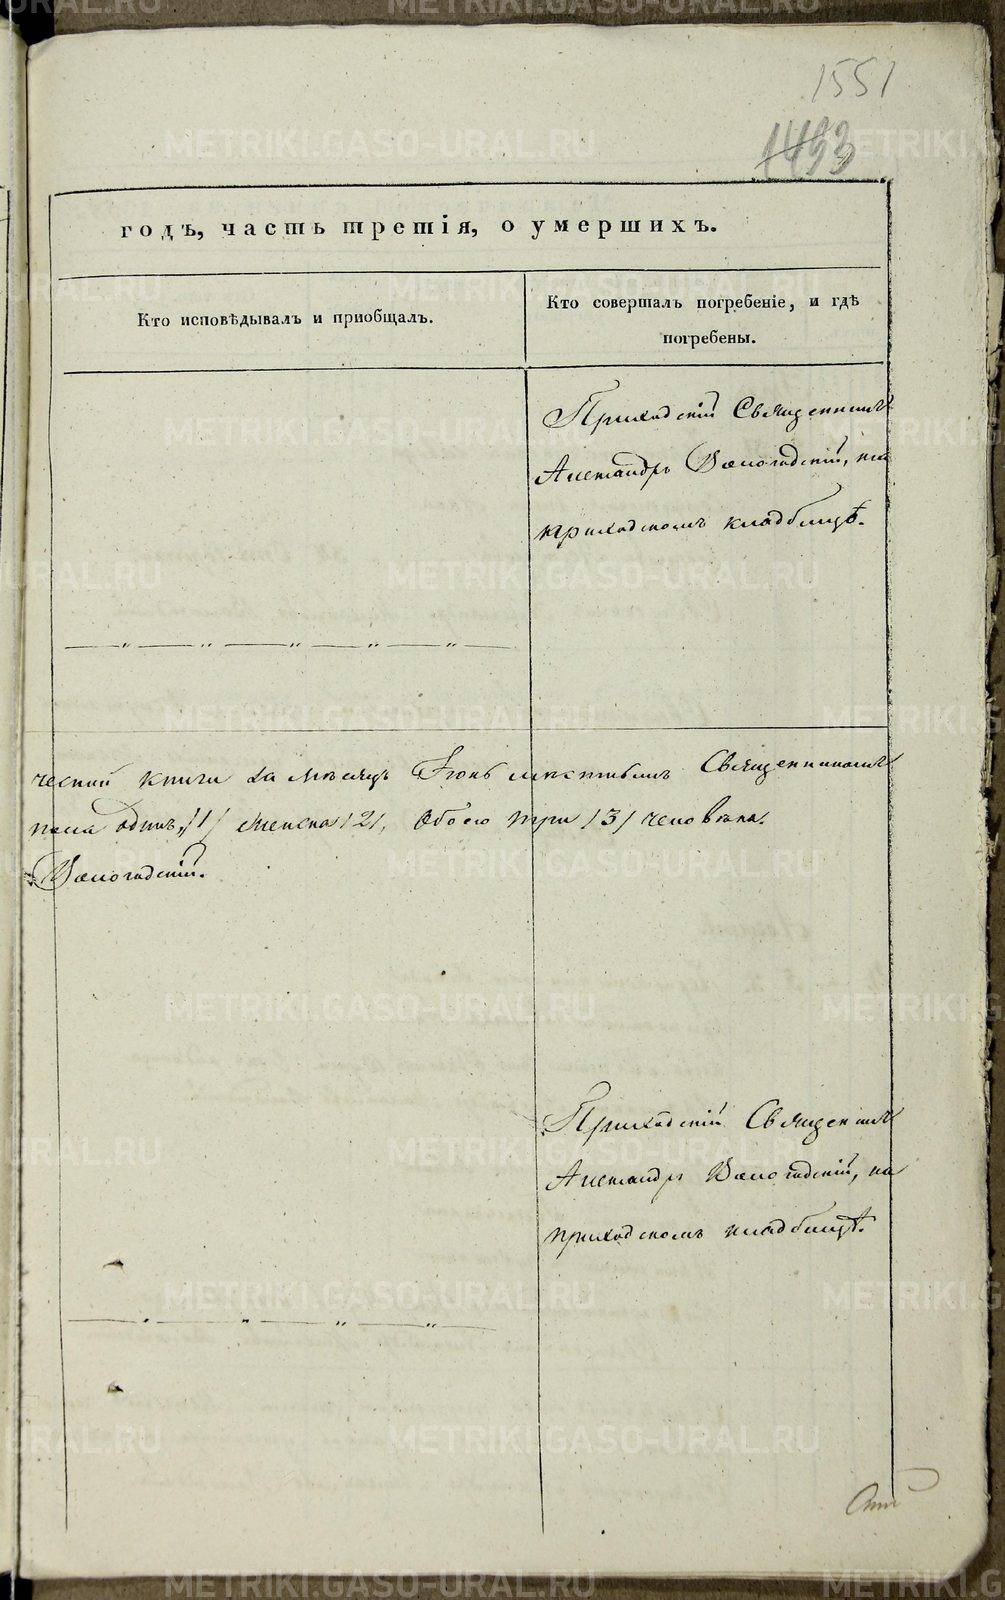 1551
1493
годъ, часть третія, о умершихъ.
Кто исповѣдывалъ и пріобщалъ.
Кто совершалъ погребеніе, и гдѣ
погребены.
Приходскій Священникъ
Александръ Вологодскій, на
приходскомъ кладбищѣ.
ческой книги за мѣсяцъ Іюнь мѣстнымъ Священникомъ
пола одинъ /1/ женска /2/, обоего три /3/ человѣка.
Вологодскій.
Приходскій Священникъ
Александръ Вологодскій, на
приходскомъ кладбищѣ.
METRIKI.GASO-URAL.RU